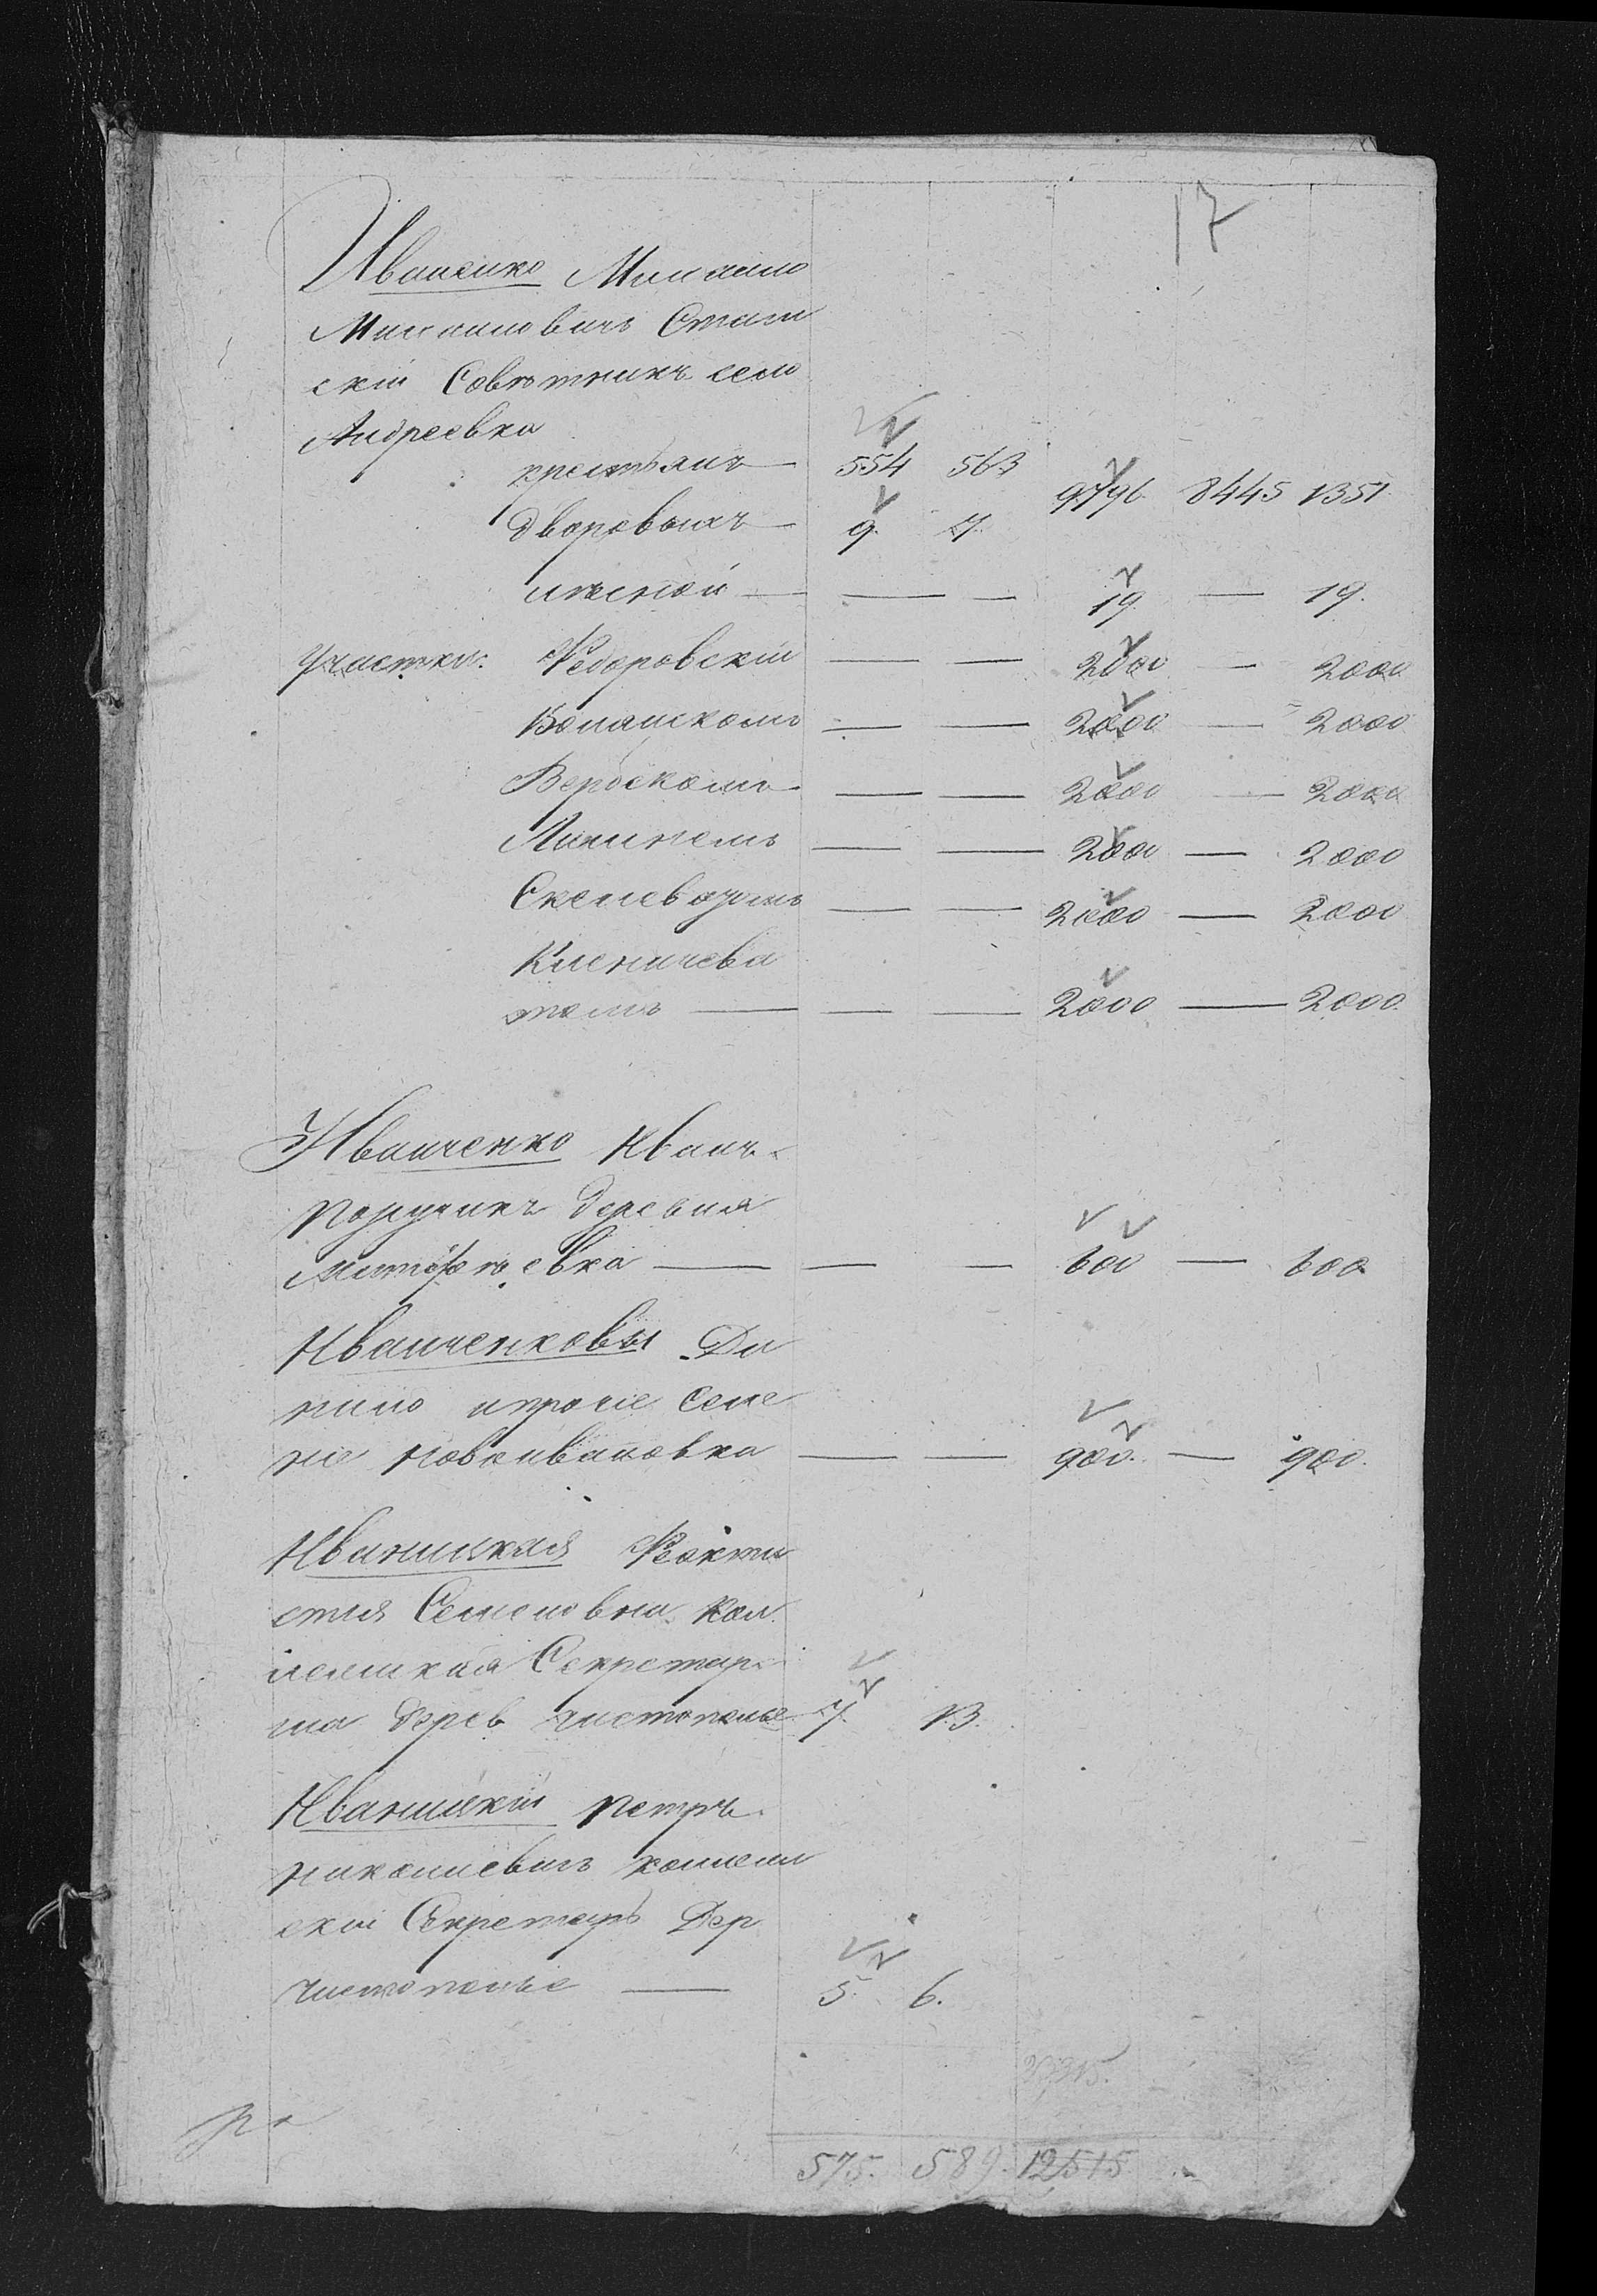 17
Иваненко Михаило
Михаиловичъ Статс
скій Совѣтникъ село
Андреевка
крестьянъ — 554 563
9796. 8445 1351.
дворовыхъ — 9. 7.
лѣсной — — — 19. — 19.
Участки: Федоровскій — — 2000 — 2000
— — 2000 — 2000
Вербскомъ — — 2000 — 2000
— — 2000 — 2000
— — 2000 — 2000
Кленичева
томъ — — — 2000 — 2000.
Иванченко Иванъ
Поручикъ деревня
Митрофаревка — — — 600 — 600.
Иванченковы Да
нило и прочіе Селе
ніе Новоивановка — — 900. — 900.
Иваницкая Феокти
стия Семеновна Кол
лежская Секретар
ша дерев Чистополье 7. 13.
Иваницкій Петръ
Николаевичъ коллеж
скій Секретарь Дер
Чистополье — 5. 6.
575. 589. 12,515